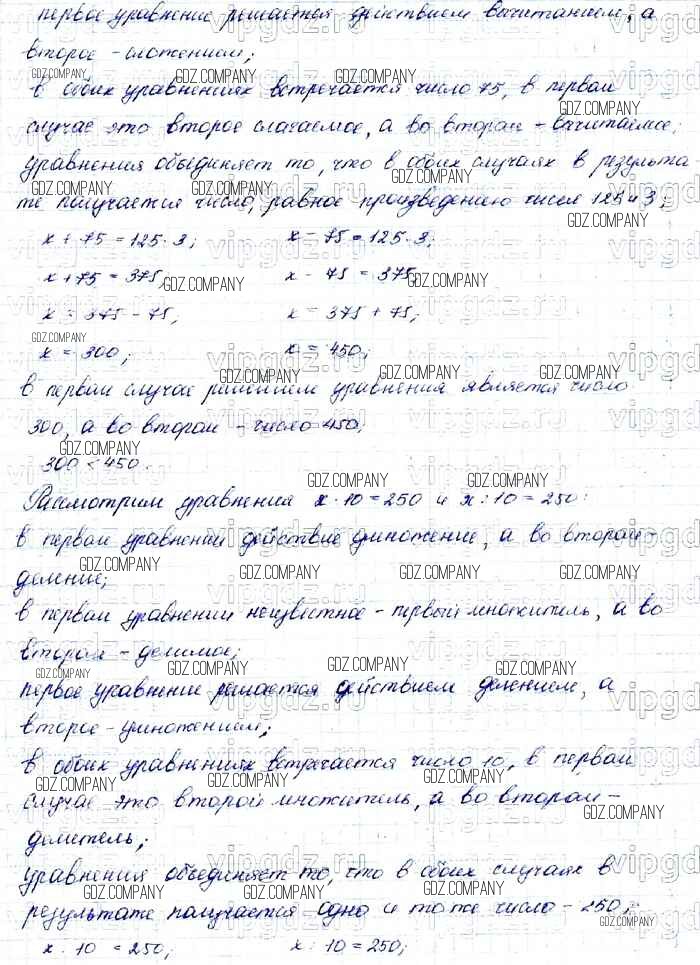 первое уравнение решается действием вычитанием, а
второе - сложением;
в обоих уравнениях встречается число 75, в первом
случае это второе слагаемое, а во втором - вычитаемое;
уравнения объединяет то, что в обоих случаях в результа
те получается число, равное произведению чисел 125 и 3;
x + 75 = 125 · 3; x - 75 = 125 · 3;
x + 75 = 375, x - 75 = 375,
x = 375 - 75, x = 375 + 75,
x = 300; x = 450;
в первом случае решением уравнения является число
300, а во втором - число 450;
300 < 450.
Рассмотрим уравнения x · 10 = 250 и x : 10 = 250:
в первом уравнении действие умножение, а во втором -
деление;
в первом уравнении неизвестное - первый множитель, а во
втором - делимое;
первое уравнение решается действием делением, а
второе - умножением;
в обоих уравнениях встречается число 10, в первом
случае это второй множитель, а во втором -
делитель;
уравнения объединяет то, что в обоих случаях в
результате получается одно и то же число - 250;
x · 10 = 250; x : 10 = 250;
GDZ.COMPANY
vipgdz.ru